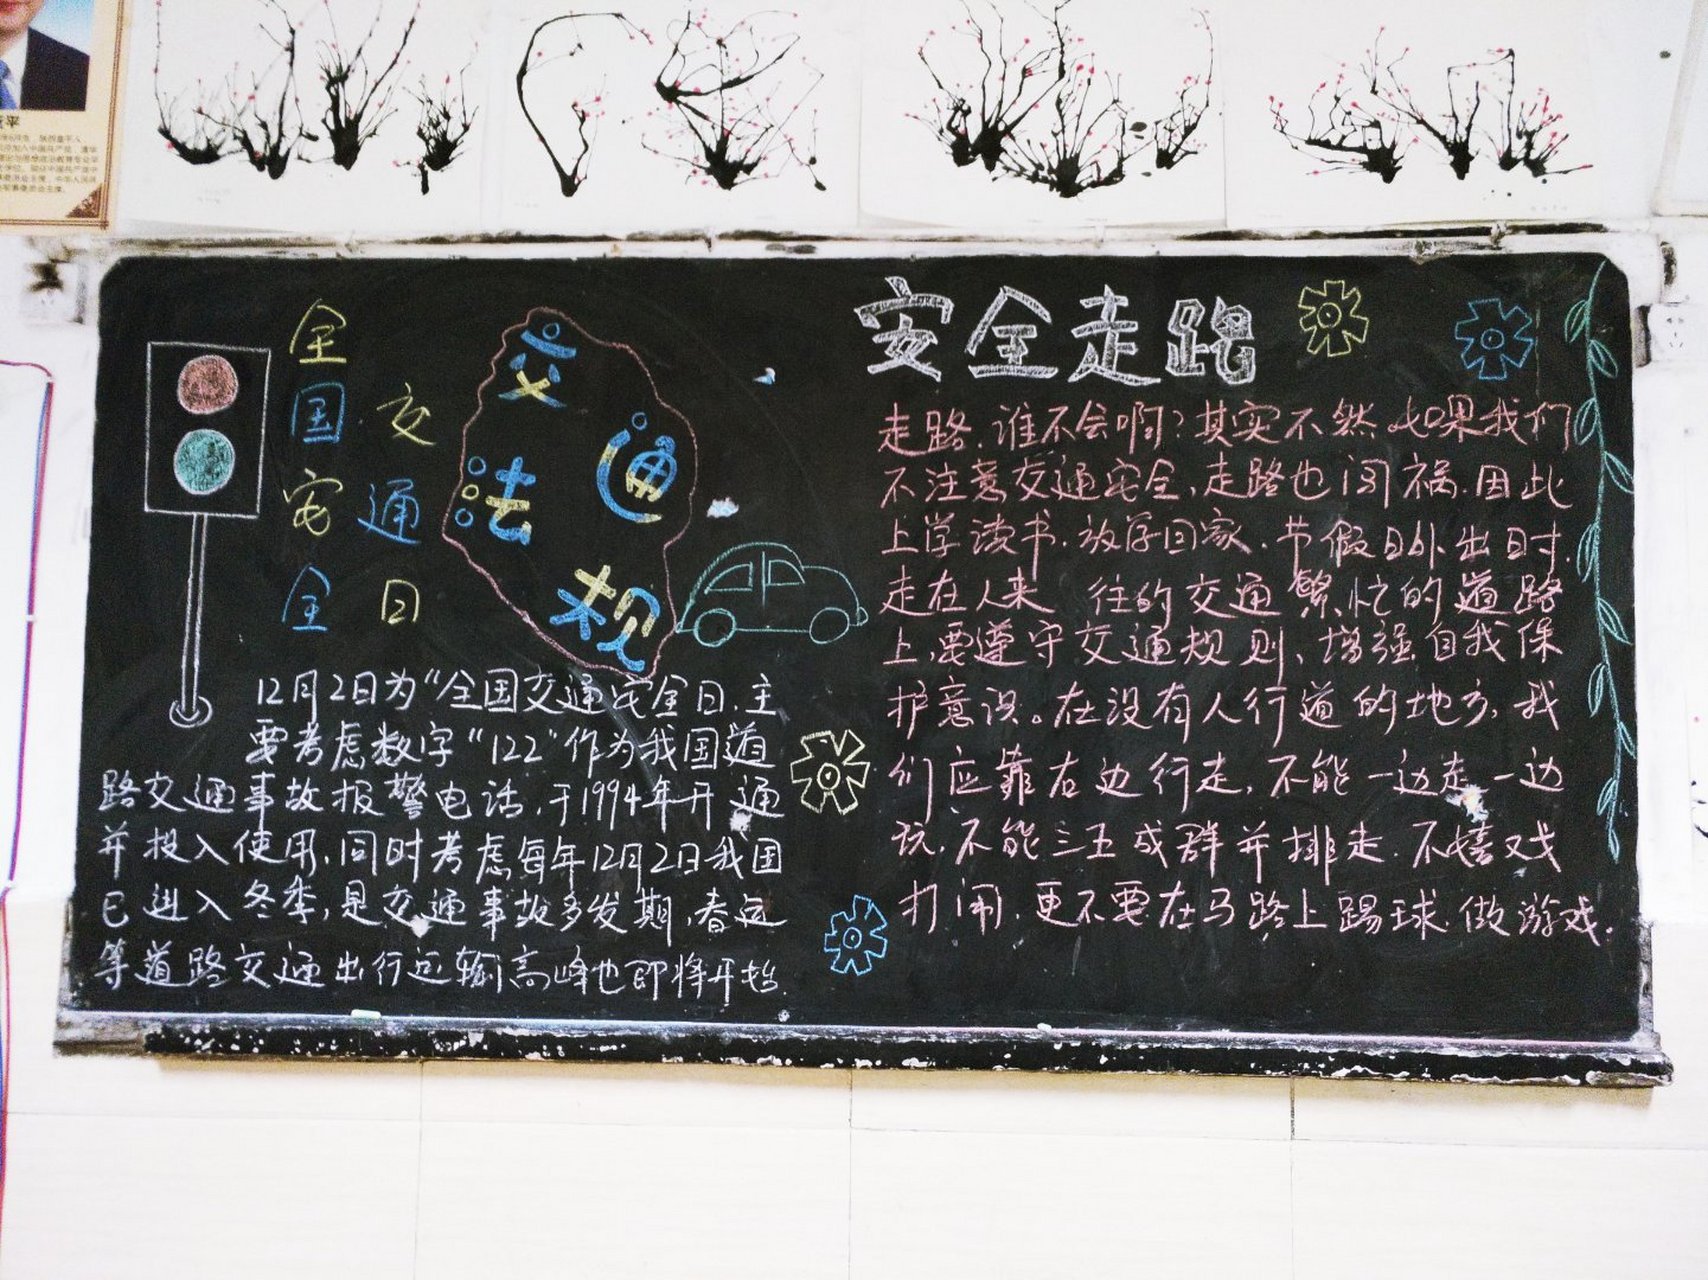 全国安全
交通日
交通法规
12月2日为“全国交通安全日.主
要考虑数字“122”作为我国道
路交通事故报警电话,于1994年开通
并投入使用.同时考虑每年12月2日我国
已进入冬季,是交通事故多发期,春运
等道路交通出行运输高峰也即将开始.
安全走路
走路.谁不会啊?其实不然.如果我们
不注意交通安全,走路也闯祸.因此
上学读书.放学回家.节假日外出时.
走在人来 往的交通繁忙的道路
上,要遵守交通规则、增强自我保
护意识。在没有人行道的地方,我
们应靠右边行走,不能一边走一边
玩,不能三五成群并排走.不嬉戏
打闹.更不要在马路上踢球.做游戏.